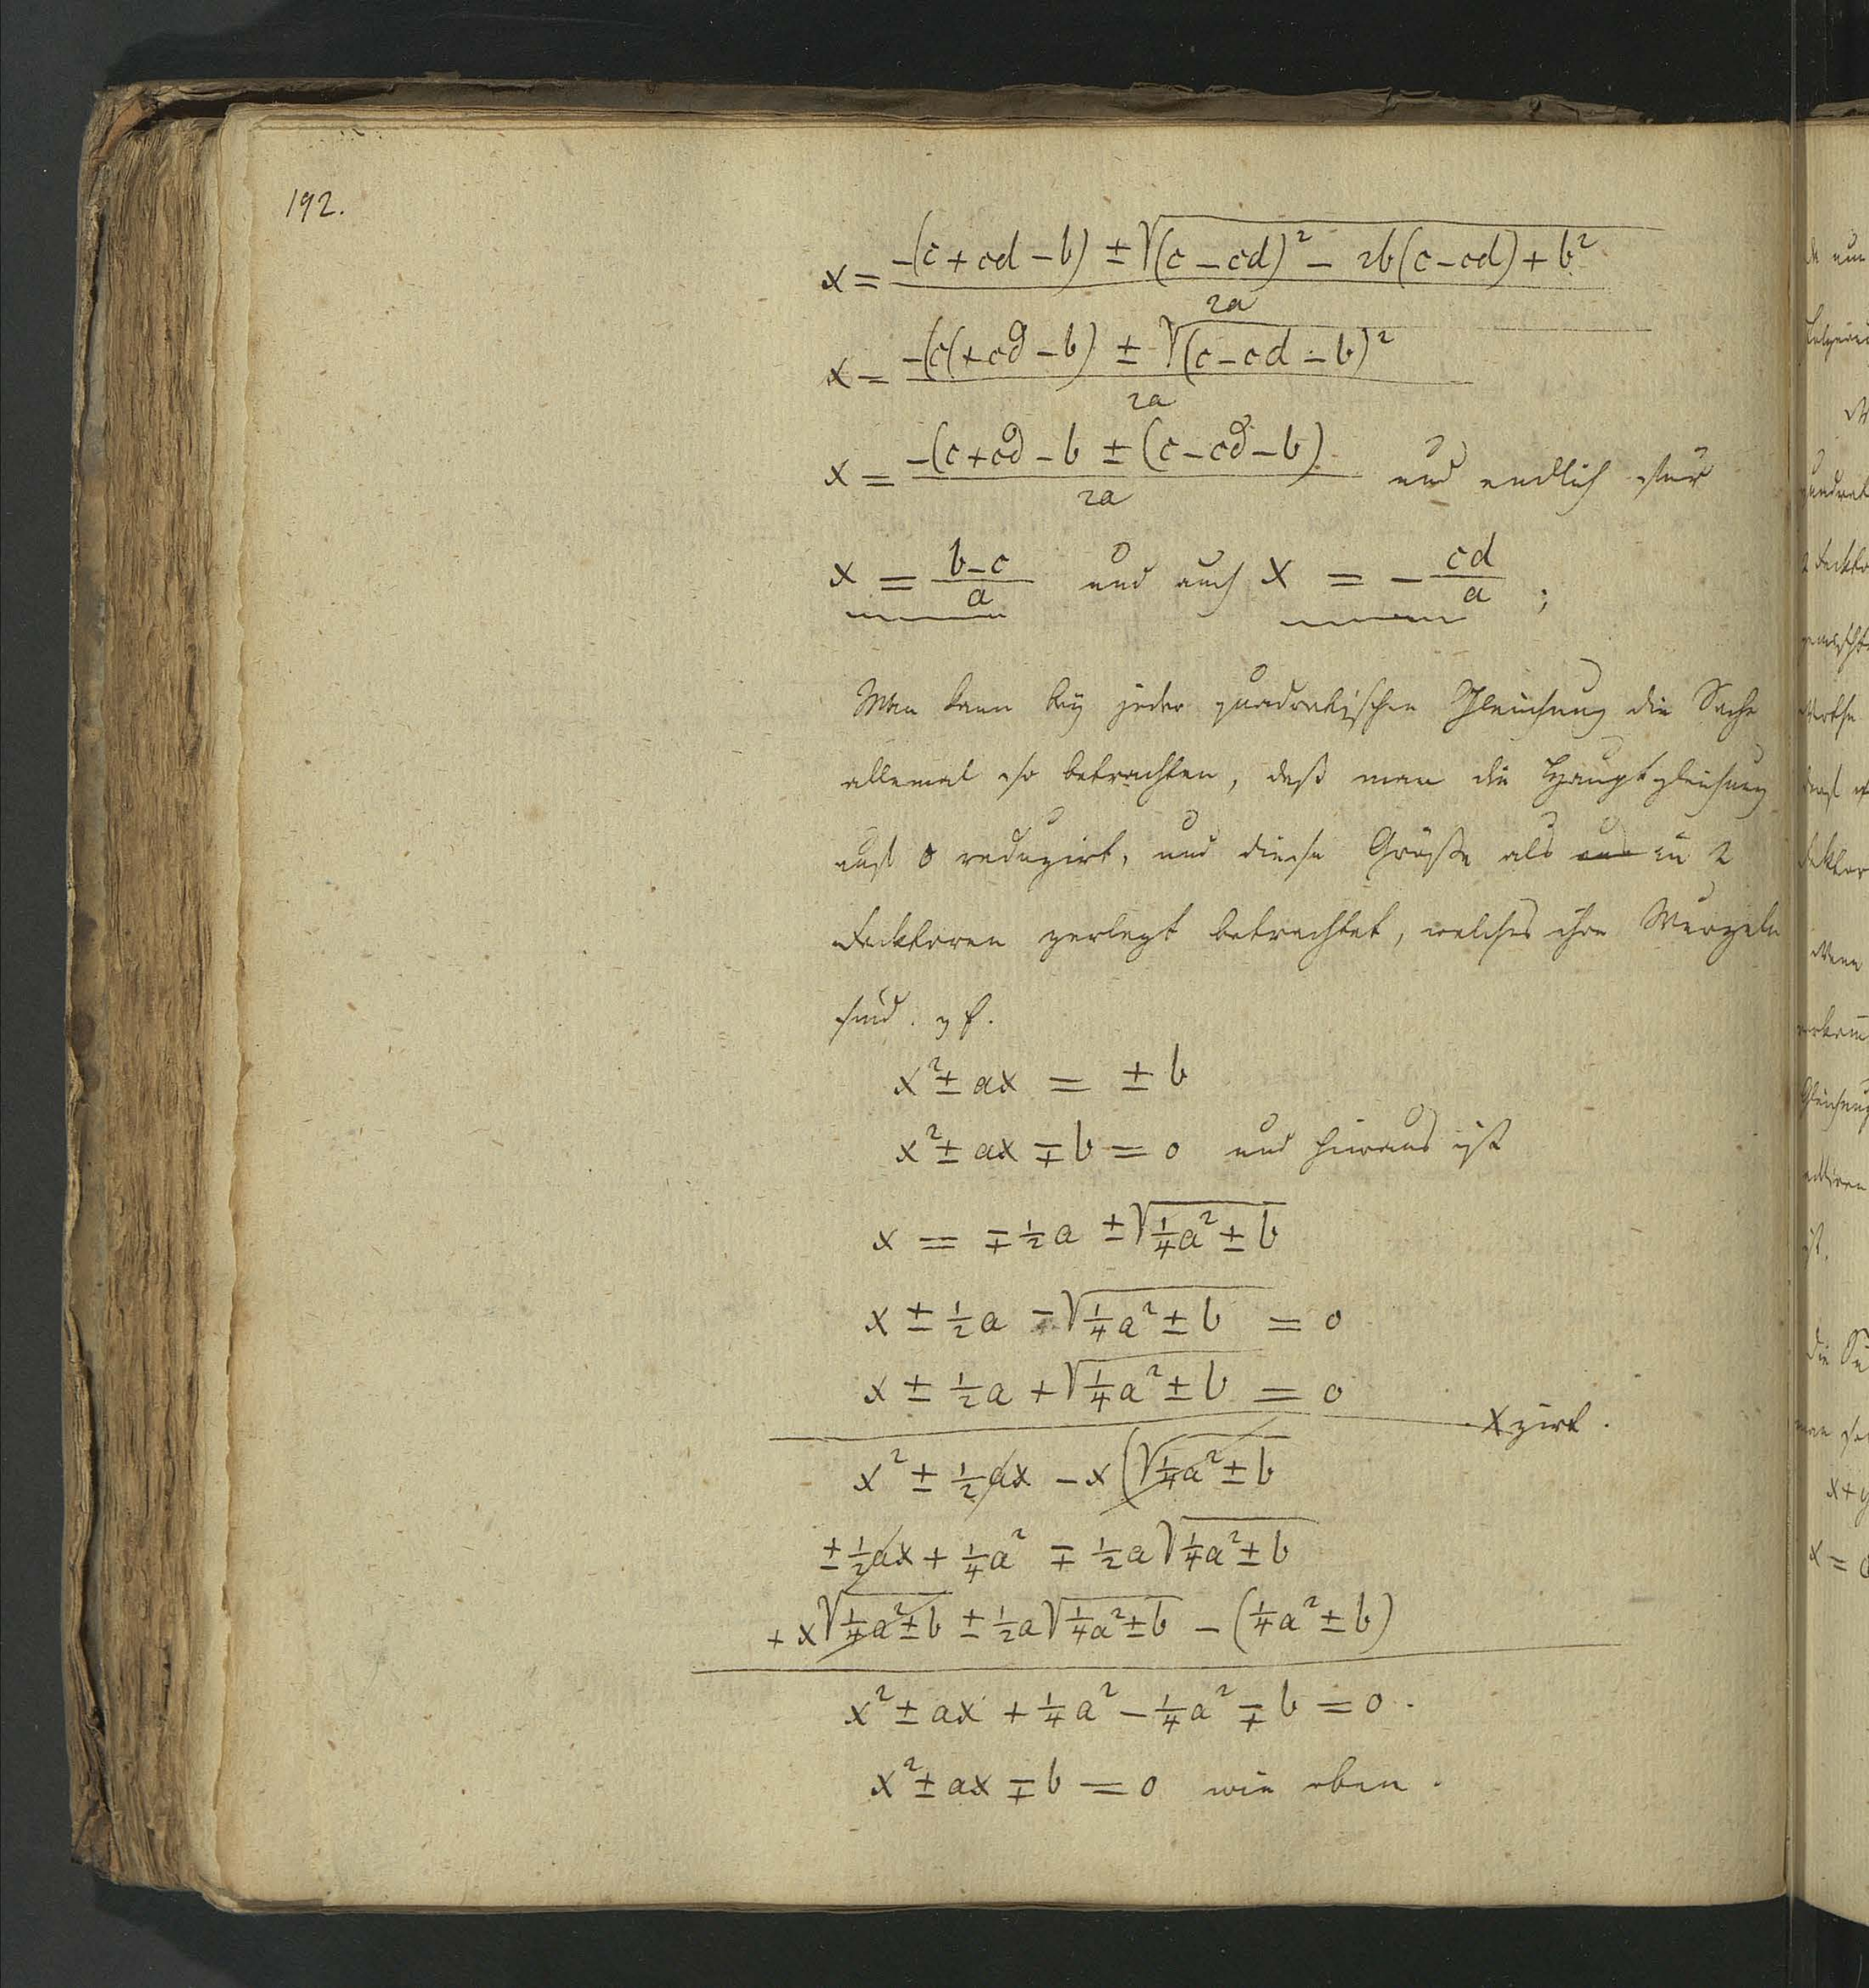 192.
x = -(c + cd - b) ± √(c - cd)² - 2b(c - cd) + b² / 2a
x = -(c(+ cd - b) ± √(c - cd - b)² / 2a
x = -(c + cd - b ± (c - cd - b) / 2a und endlich
x = b - c / a und auch x = - cd / a ;
Man kann bey jeder quadratischen Gleichung die Sache
allemal so betrachten, daß man die Hauptgleichung
auf 0 reduzirt, und diese Größe als aus in 2
Facktoren zerlegt betrachtet, welches ihre Wurzeln
sind. z f.
x² ± ax = ± b
x² ± ax ∓ b = 0 und hieraus ist
x = ∓ ½a ± √¼a² ± b
x ± ½a - √¼a² ± b = 0
x ± ½a + √¼a² ± b = 0
x zirt.
x² ± ½ax - x(√¼a² ± b
± ½ax + ¼a² ∓ ½a√¼a² ± b
+ x√¼a² ± b ± ½a√¼a² ± b - (¼a² ± b)
x² ± ax + ¼a² - ¼a² ∓ b = 0.
x² ± ax ∓ b = 0 wie oben.